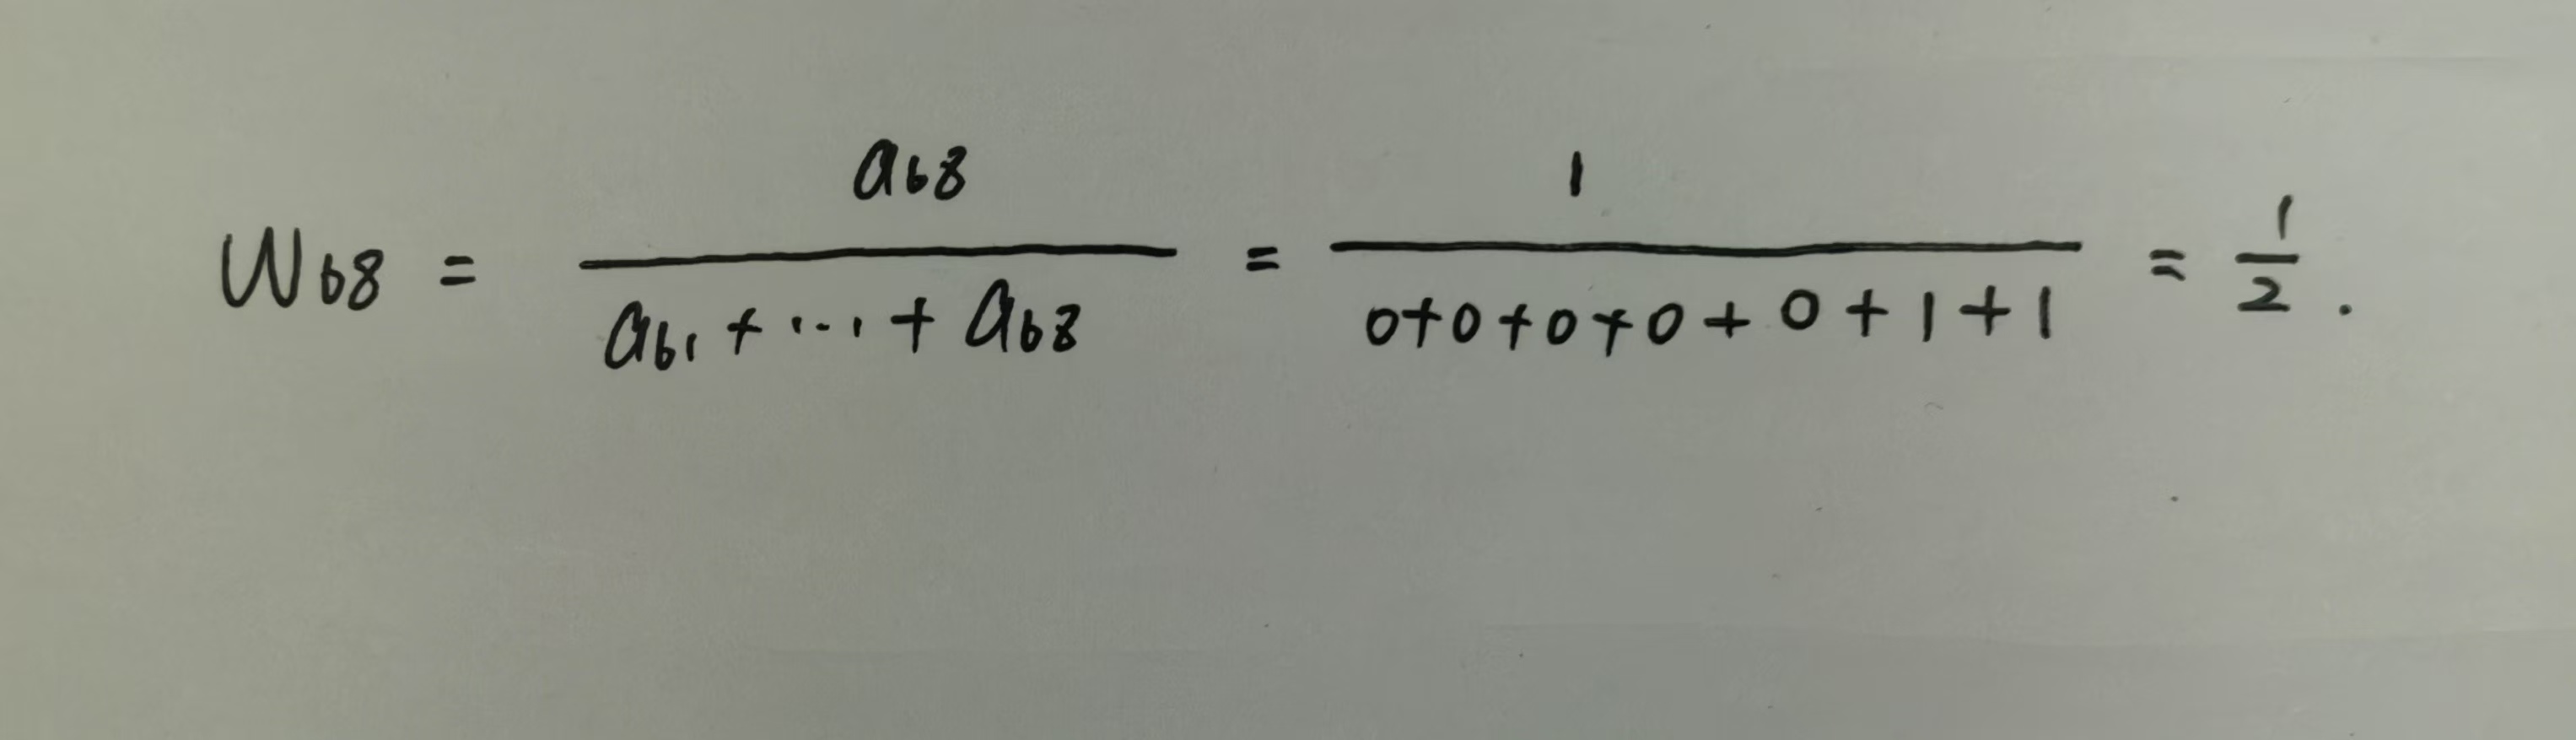 W₆₈ = a₆₈ / (a₆₁ + ... + a₆₈) = 1 / (0+0+0+0+0+1+1) = 1/2.